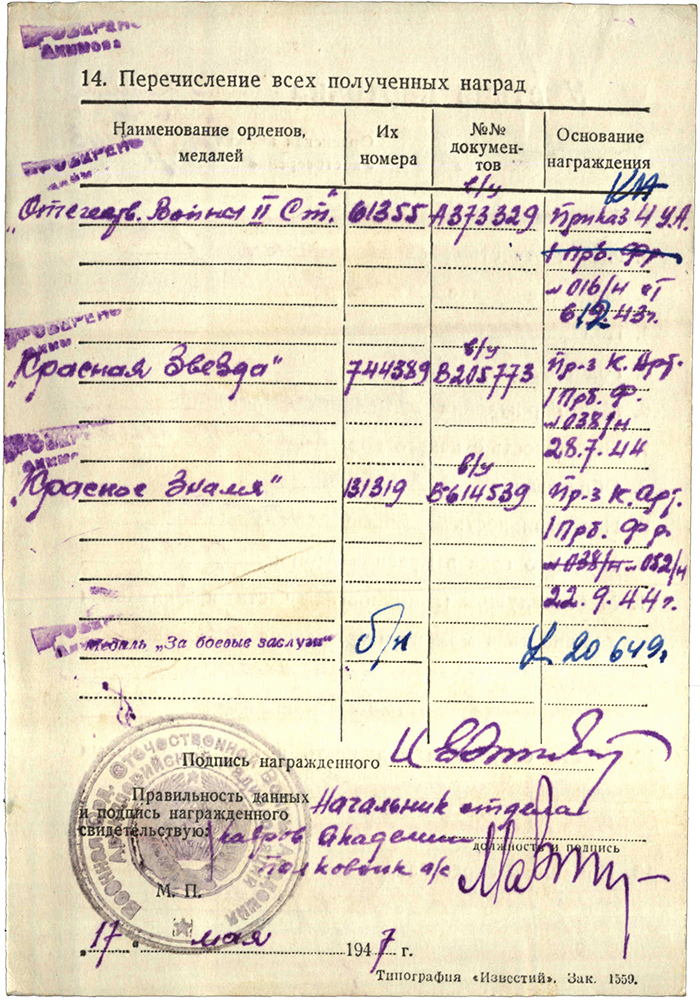 ПРОВЕРЕНО
Акимова
14. Перечисление всех полученных наград
Наименование орденов, медалей
Их номера
№№ докумен-тов
Основание награждения
ПРОВЕРЕНО
в/у
КА
„Отечеств. Война II Ст." 61355 А373329 Приказ 4 У.А.
1 Прб. Фр
№ 016/н от
6 12.43г.
ПРОВЕРЕНО
в/у
„Красная Звезда" 744389 В205773 Пр-з К. Арт.
1 Прб. Ф.
№ 038/н
28.7.44
в/у
„Красное Знамя" 131319 Б614539 Пр-з К. Арт.
1 Прб. Фр.
№ 038/н № 052/н
22.9.44г.
Медаль „За боевые заслуги" б/н У 20 649,
Подпись награжденного
Правильность данных
и подпись награжденного
свидетельствую:
Начальник отдела
кадров Академии
должность и подпись
Полковник
М. П.
„17" мая 1947 г.
Типография «Известий». Зак. 1559.